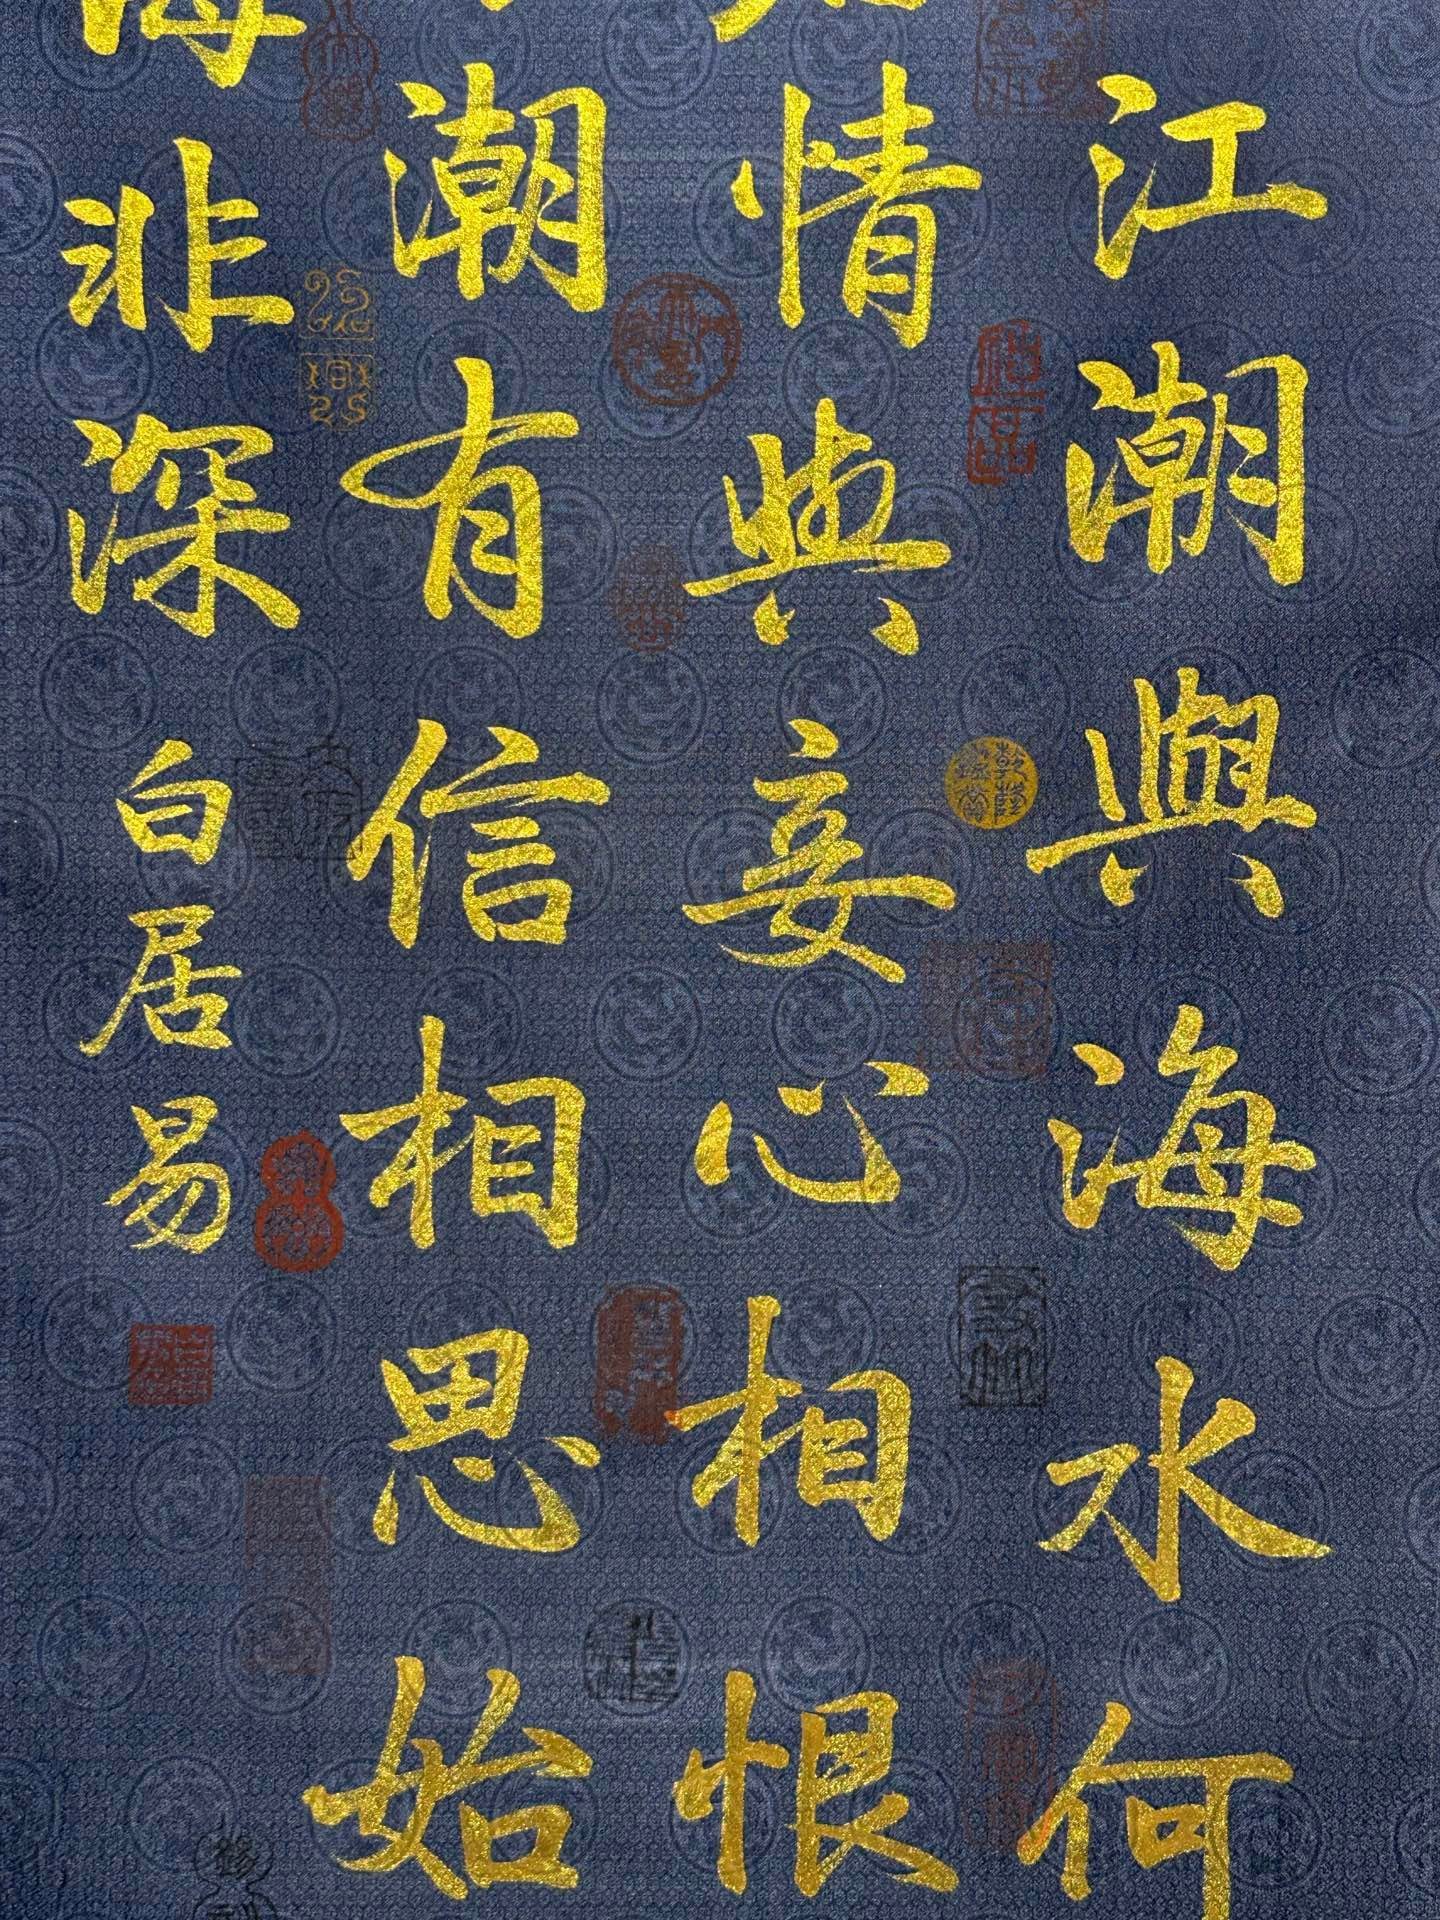 江潮與海水何
情與妾心相恨
潮有信相思始
海非深
白居易